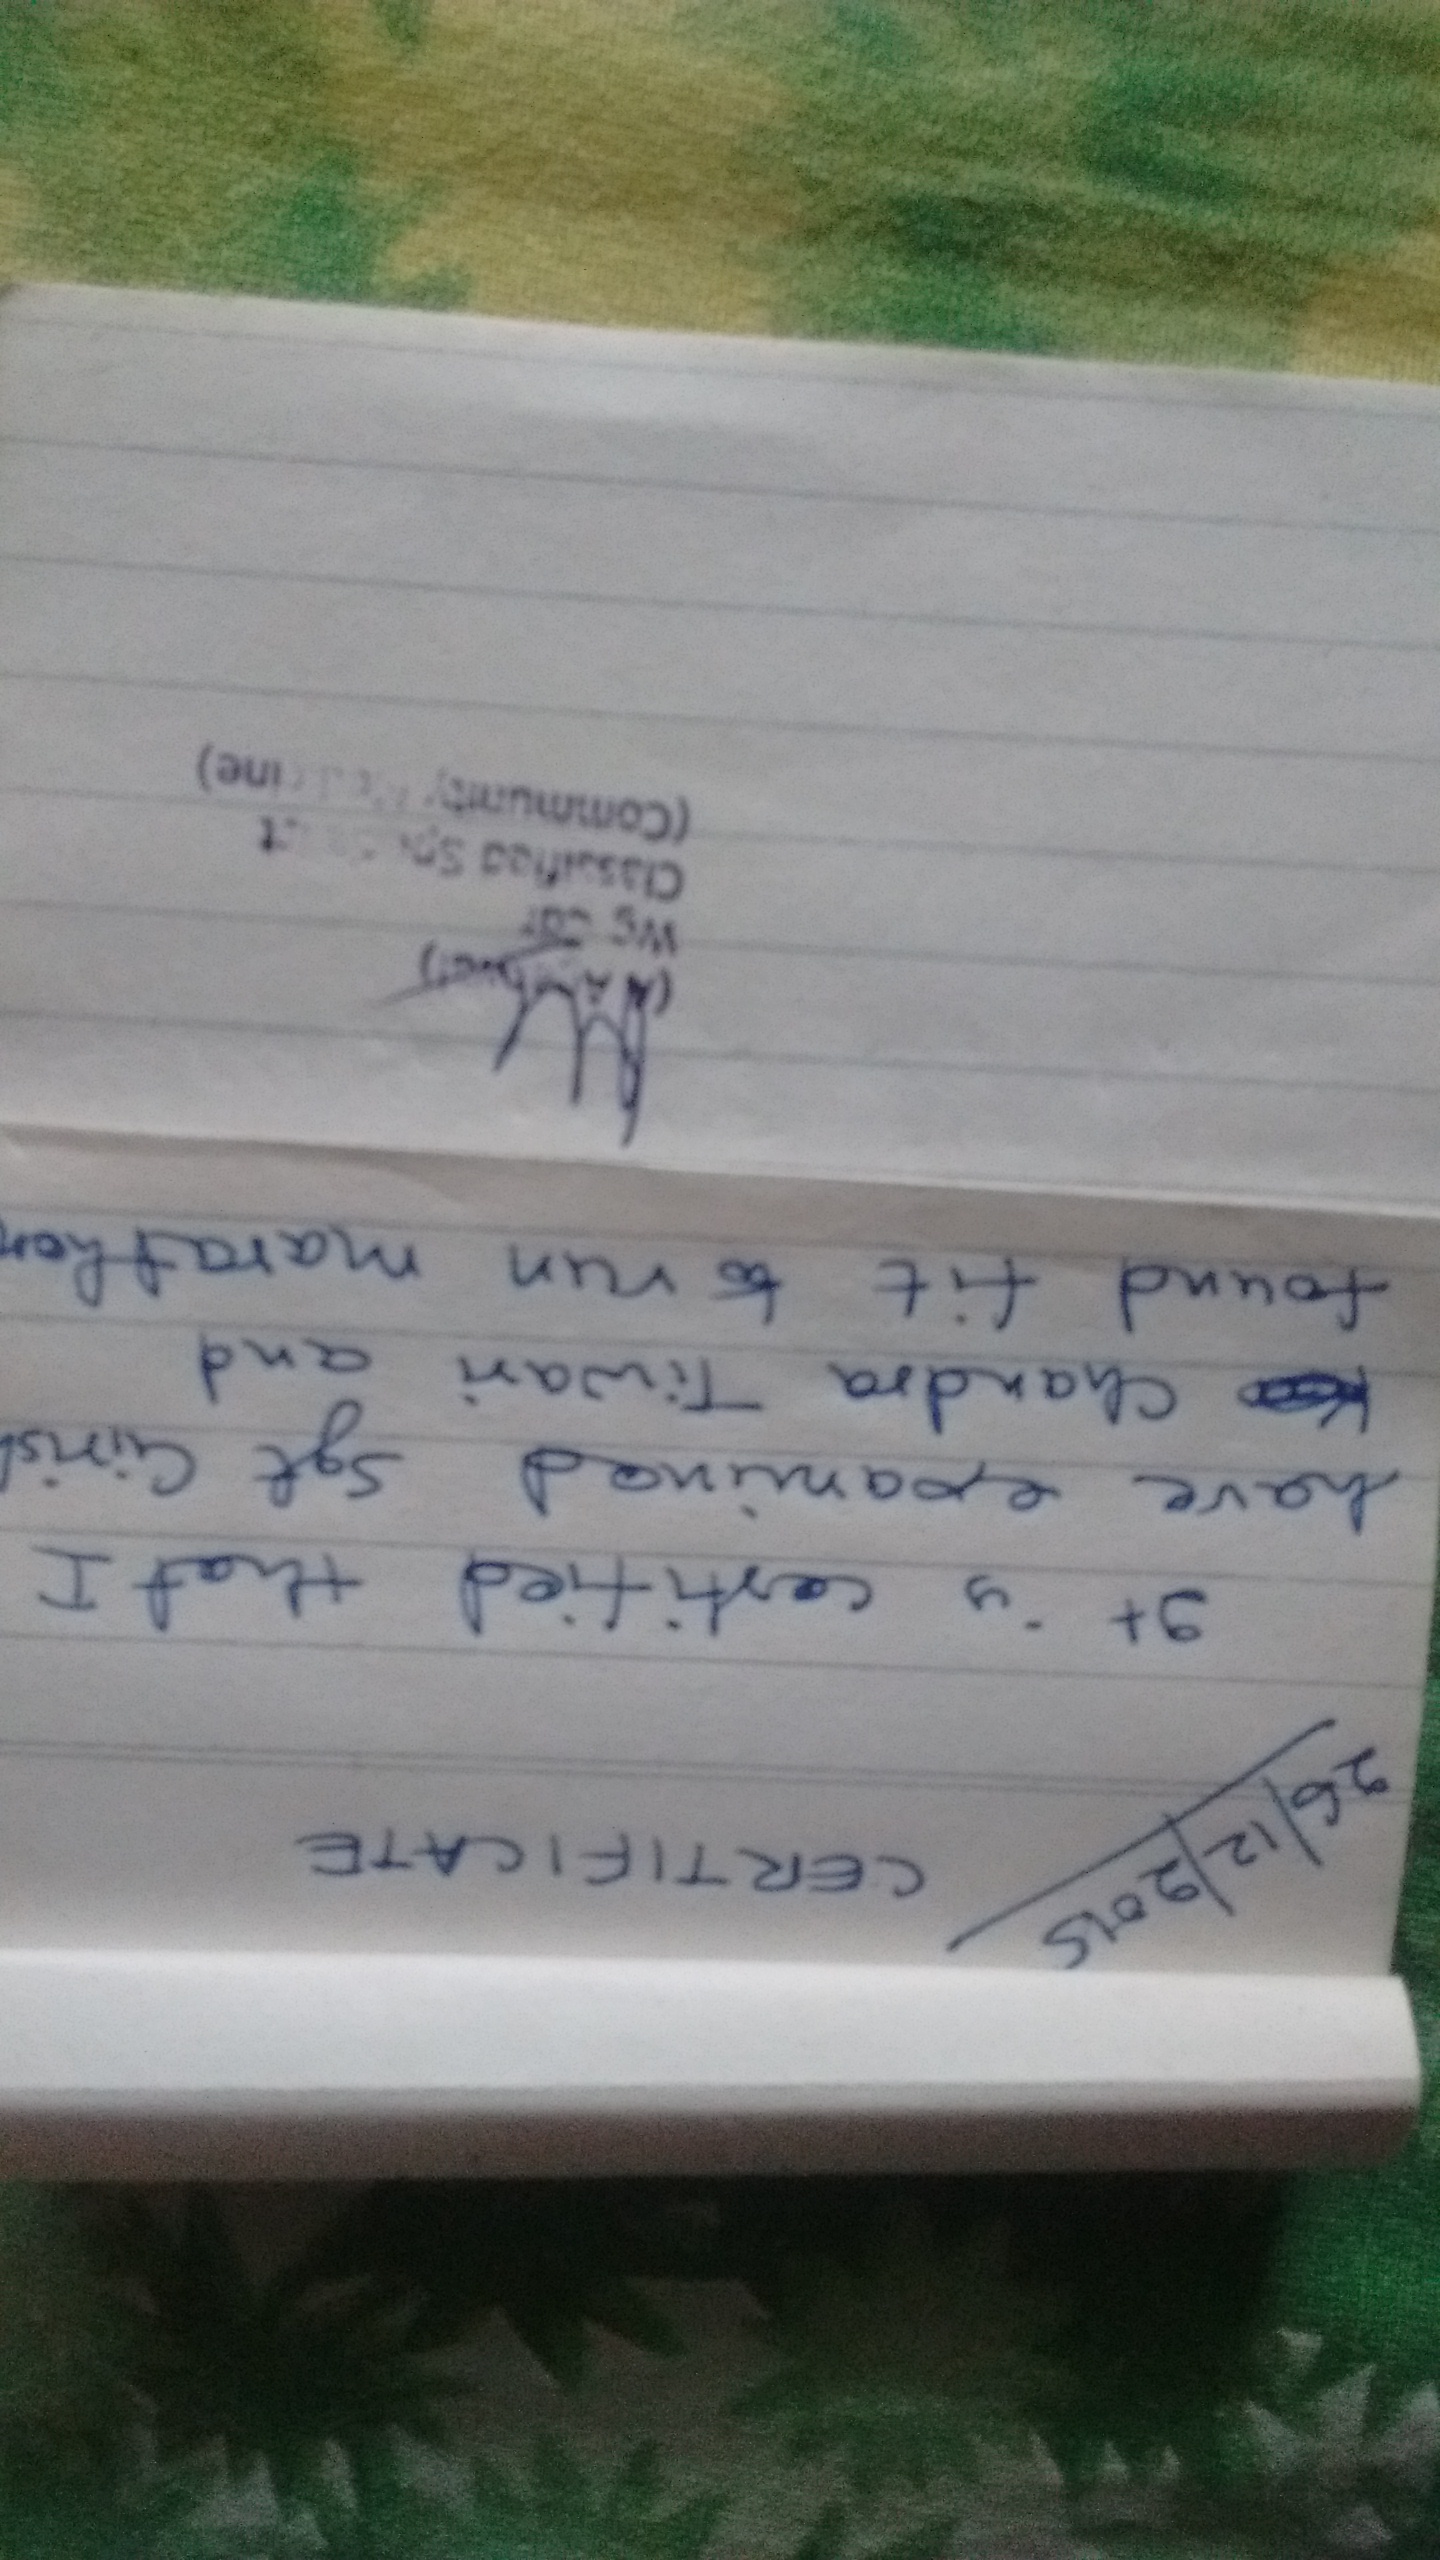 26/12/2015
CERTIFICATE
It is certified that I
have examined Sgt Girish
Chandra Tiwari and
found fit to run marathon
Wg Cdr
Classified
(Community